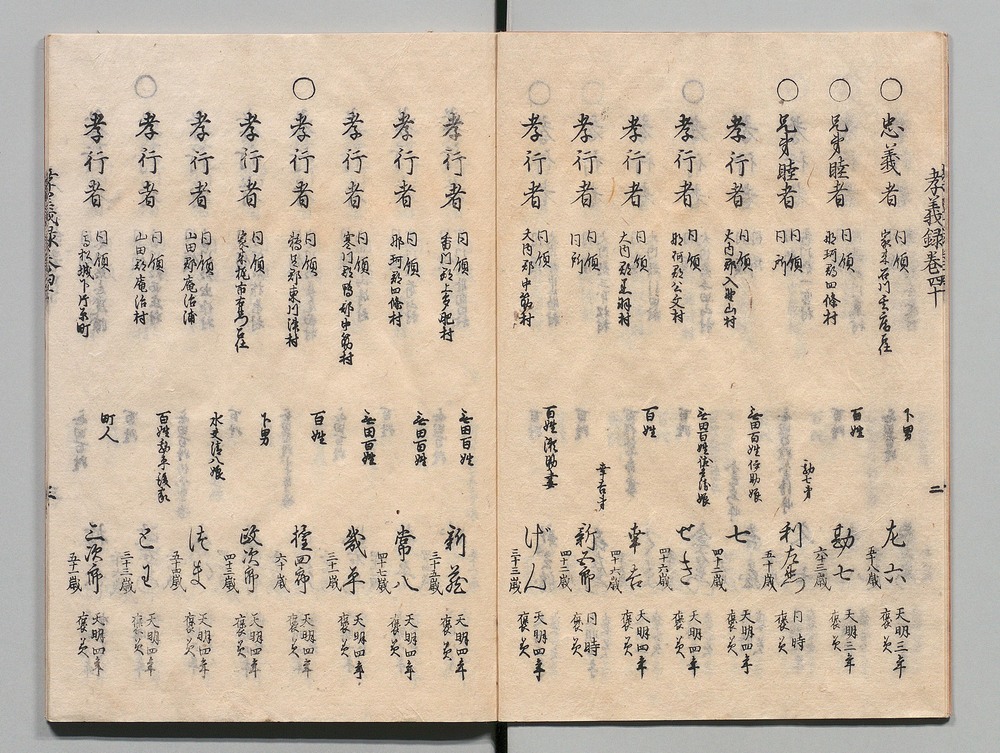 孝義録卷四十
二
○ 忠義者
同領
下男
五十八歳
天明三年
褒美
○ 兄弟睦者
同領
那珂郡四條村
百姓
勘七
六十三歳
天明三年
褒美
○ 兄弟睦者
同領
同所
勘七弟
五十歳
同時
褒美
孝行者
同領
大内郡入野山村
七
四十二歳
天明四年
褒美
○ 孝行者
同領
那珂郡公文村
せき
四十六歳
天明四年
褒美
孝行者
同領
大内郡黒羽村
百姓
幸吉
四十六歳
天明四年
褒美
孝行者
同領
同所
幸吉弟
新五郎
四十二歳
同時
褒美
○ 孝行者
同領
大内郡中筋村
げん
三十三歳
天明四年
褒美
孝行者
同領
香川郡上多肥村
無田百姓
新蔵
三十五歳
天明四年
褒美
孝行者
同領
那珂郡四條村
無田百姓
常八
四十六歳
天明四年
褒美
孝行者
同領
寒川郡鴨部中筋村
無田百姓
幾平
三十六歳
天明四年
褒美
○ 孝行者
同領
鵜足郡東川津村
百姓
権四郎
六十歳
天明四年
褒美
孝行者
同領
下男
政次郎
四十三歳
天明四年
褒美
孝行者
同領
山田郡庵治浦
水夫清八娘
五十四歳
天明四年
褒美
○ 孝行者
同領
山田郡庵治村
三十三歳
天明四年
褒美
孝行者
同領
高松城下片原町
町人
三次郎
五十一歳
天明四年
褒美